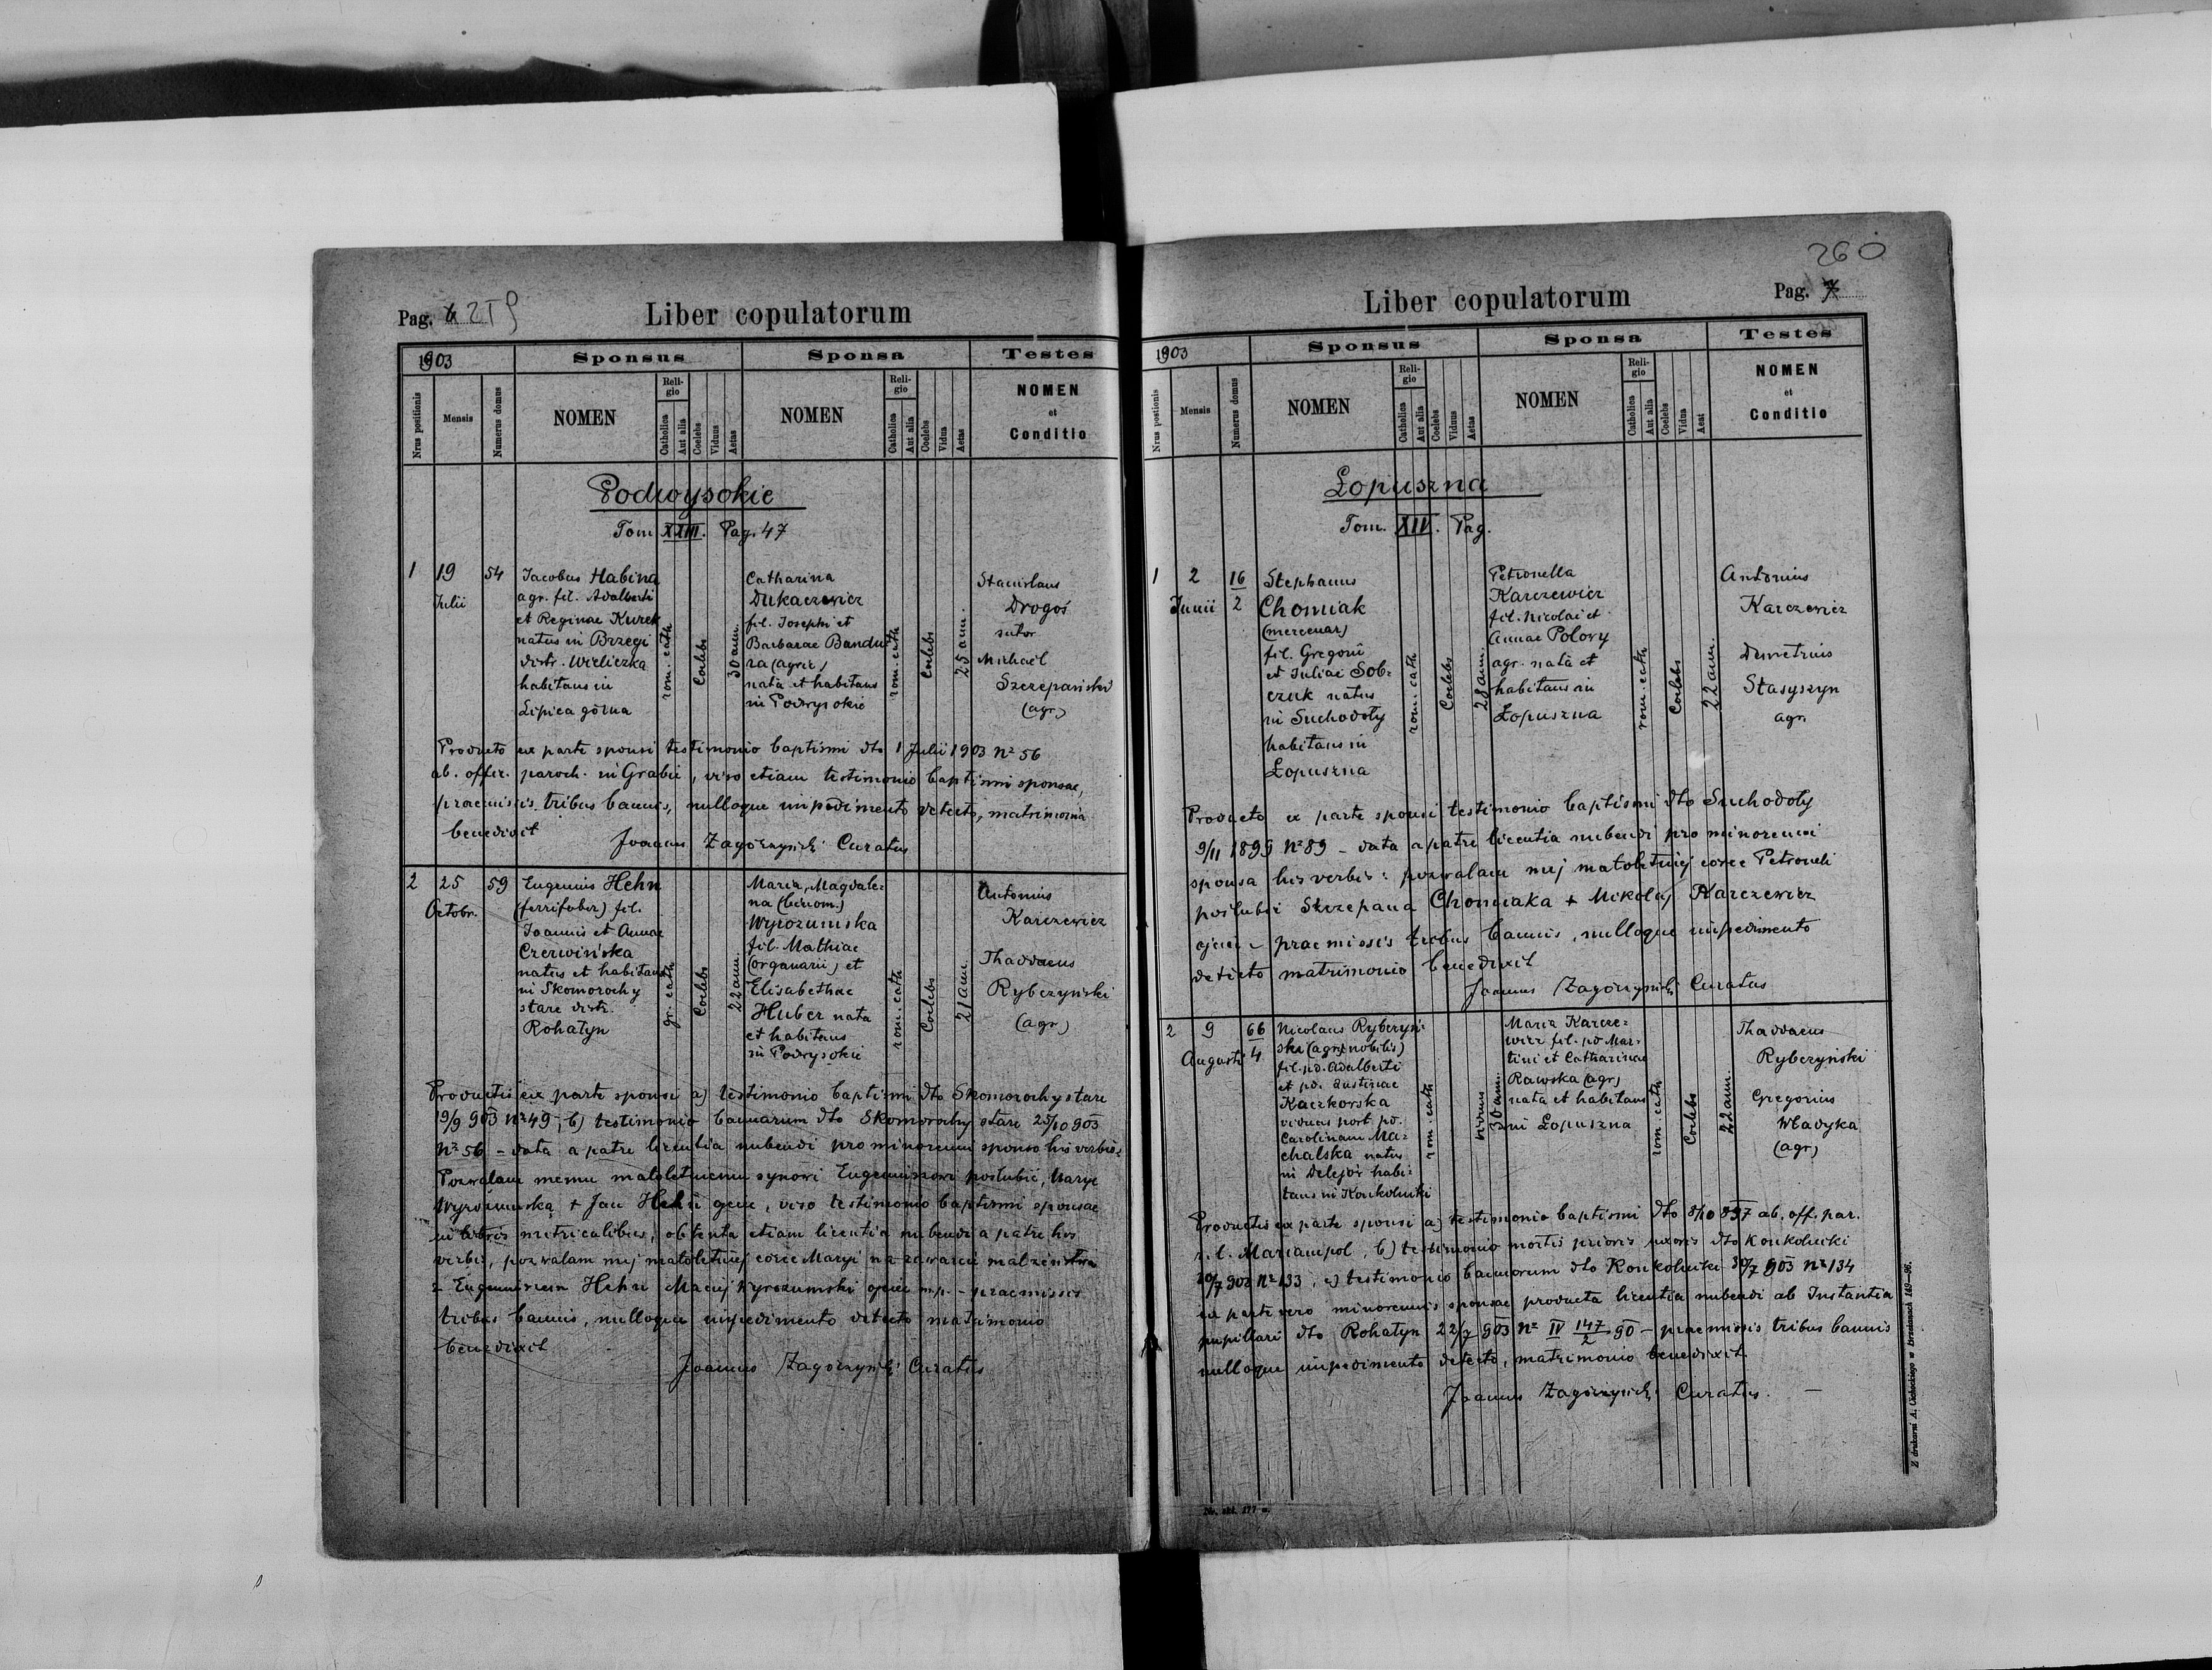 Pag. 6 259
Liber copulatorum
1903
Sponsus
Sponsa
Testes
Nrus positionis
Mensis
Numerus domus
NOMEN
Reli-
gio
Catholica
Aut alia
Coelebs
Viduus
Aetas
NOMEN
Reli-
gio
Catholica
Aut alia
Coelebs
Vidua
Aetas
NOMEN
et
Conditio
Podwysokie
Tom XXIII. Pag. 47
1
19
Julii
54
Jacobus Habina
agr. fil. Adalberti
et Reginae Kurek
natus in Brzegi
distr. Wieliczka
habitans in
Lipica górna
rom. cath
Coelebs
30 ann.
Catharina
Dukaczewicz
fil. Josephi et
Barbarae Bandu
ra (agric)
nata et habitans
in Podwysokie
rom. cath
Coelebs
25 ann.
Stanislaus
Drogoś
sutor
Michaël
Szczepański
(agr.)
Producto ex parte sponsi testimonio baptismi dto 1 Julii 1903 No 56
ab. offic. paroch. in Grabie, viso etiam testimonio baptismi sponsae,
praemissis tribus bannis, nulloque impedimento detecto, matrimonia
benedixit
Joannes Zagórzyński Curatus
2
25
Octobr.
59
Eugenius Hehn
(ferrifaber) fil.
Joannis et Annae
Czerwińska
natus et habitans
in Skomorochy
stare distr.
Rohatyn
gr. cath
Coelebs
22 ann.
Maria, Magdale-
na (binom.)
Wyrozumska
fil. Mathiae
(organarii) et
Elisabethae
Huber nata
et habitans
in Podwysokie
rom. cath
Coelebs
21 ann.
Antonius
Karczewicz
Thaddaeus
Rybczyński
(agr)
Productis ex parte sponsi a) testimonio baptismi dto Skomorochy stare
19/9 903 No 49, b) testimonio bannorum dto Skomorochy stare 25/10 903
No 56 – data a patre licentia nubendi pro minorenni sponso his verbis:
Pozwalam memu małoletniemu synowi Eugeniuszowi poślubić, Maryę
Wyrozumską + Jan Hehn ojciec, viso testimonio baptismi sponsae
in libris metricalibus, obtenta etiam licentia nubendi a patre his
verbis, pozwalam mej małoletniej córce Maryi na zawarcie małżeństwa
z Eugeniuszem Hehn Maciej Wyrozumski ojciec mp. – praemissis
tribus bannis, nulloque impedimento detecto matrimonio
benedixit
Joannes Zagórzyński Curatus
260
Liber copulatorum
Pag. 7
1903
Sponsus
Sponsa
Testes
Nrus positionis
Mensis
Numerus domus
NOMEN
Reli-
gio
Catholica
Aut alia
Coelebs
Viduus
Aetas
NOMEN
Reli-
gio
Catholica
Aut alia
Coelebs
Vidua
Aeat
NOMEN
et
Conditio
Łopuszna
Tom. XIV. Pag.
1
2
Junii
16
2
Stephanus
Chomiak
(mercenar)
fil. Gregorii
et Juliae Sob-
czuk natus
in Suchodoły
habitans in
Łopuszna
rom. cath
Coelebs
28 ann.
Petronella
Karczewicz
fil. Nicolai et
Annae Polovy
agr. nata et
habitans in
Łopuszna
rom. cath
Coelebs
22 ann.
Antonius
Karczewicz
Demetrius
Stasyszyn
agr.
Producto ex parte sponsi testimonio baptismi dto Suchodoły
9/11 1899 No 89 – data a patre licentia nubendi pro minorenni
sponsa his verbis: pozwalam mej małoletniej córce Petroneli
poślubić Szczepana Chomiaka + Mikołaj Karczewicz
ojciec – praemissis tribus bannis, nulloque impedimento
detecto matrimonio benedixit
Joannes Zagórzyński Curatus
2
9
Augusti
66
4
Nicolaus Rybczyń-
ski (agr. nobilis)
fil. pd. Adalberti
et pd. Justinae
Kaczkorska
viduus post pd.
Carolinam Ma-
chalska natus
in Delejów habi-
tans in Konkolniki
rom. cath
viduus
30 ann.
Maria Karcze-
wicz fil. pd Mar-
tini et Catharinae
Rawska (agr)
nata et habitans
in Łopuszna
rom. cath
Coelebs
22 ann.
Thaddaeus
Rybczyński
Gregorius
Władyka
(agr)
Productis ex parte sponsi a) testimonio baptismi dto 8/10 897 ab. off. par.
r. l. Mariampol, b) testimonio mortis prioris uxoris dto Konkolniki
20/7 902 No 133, c) testimonio bannorum dto Konkolniki 30/7 903 No 134
ex parte vero minorennis sponsae producta licentia nubendi ab Instantia
pupillari dto Rohatyn 22/7 903 No IV 147/2 90 – praemissis tribus bannis
nulloque impedimento detecto, matrimonio benedixit.
Joannes Zagórzyński Curatus. –
Z drukarni A. Cichockiego w Brzeżanach 149—96.